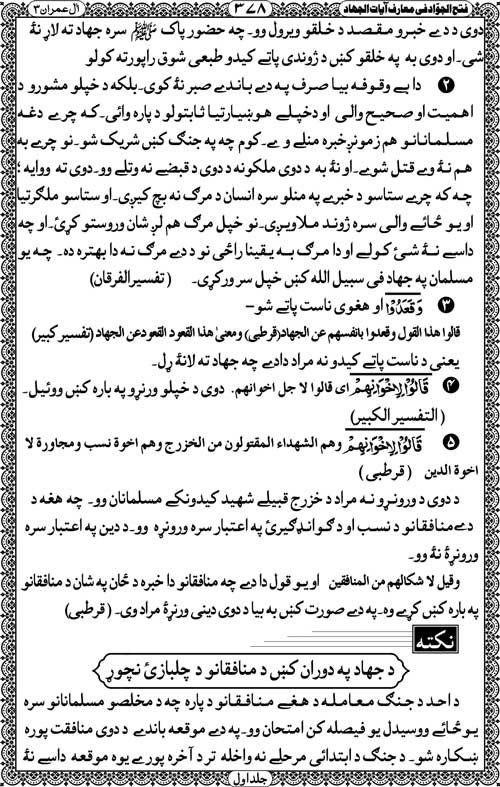 فتح الجوّاد فی معارف آیات الجهاد
۳۷۸
آل عمران ۳
دوی د دے خبرو مقصد د خلقو ویرول وو۔ چہ حضور پاک ﷺ سرہ جهاد تہ لاړ نۀ
شی۔ او دوی بہ پہ خلقو کښ د ژوندی پاتے کیدو طبعی شوق راپورتہ کولو
۲ دا بے وقوفہ بیا صرف پہ دے باندے صبر نۀ کوی۔ بلکہ د خپلو مشورو د
اهمیت او صحیح والی او دخپلے هوښیارتیا ثابتولو د پارہ وائی۔ کہ چرے دغہ
مسلمانانو هم زمونږ خبرہ منلے وے۔ کوم چہ پہ جنګ کښ شریک شو۔ نو چرے بہ
هم نۀ وے قتل شوے۔ او نۀ بہ د دوی ملکونہ د دوی د قبضے نہ وتلے وو۔ دوی تہ ووایہ؛
چہ کہ چرے ستاسو د خبرے پہ منلو سرہ انسان د مرګ نہ بچ کیږی۔ او ستاسو ملګرتیا
او یو ځائے والی سرہ ژوند ملاویږی۔ نو خپل مرګ هم لږ شان وروستو کړئ۔ او چہ
داسے نۀ شئ کولے او دا مرګ بہ یقینا راځی نو د دے مرګ نہ دا بهترہ دہ۔ چہ یو
مسلمان پہ جهاد فی سبیل اللہ کښ خپل سر ورکړی۔ (تفسیر الفرقان)
۳ وَقَعَدُوْا او هغوی ناست پاتے شو۔
قالوا هذا القول وقعدوا بانفسهم عن الجهاد (قرطبی) ومعنیٰ هذا القعود القعود عن الجهاد (تفسیر کبیر)
یعنی د ناست پاتے کیدو نہ مراد دا دے چہ جهاد تہ لانۀ ړل۔
۴ قَالُوْا لِاِخْوَانِهِمْ ای قالوا لا جل اخوانهم۔ دوی د خپلو ورنړو پہ بارہ کښ ووئیل۔
(التفسیر الکبیر)
۵ قَالُوْا لِاِخْوَانِهِمْ وهم الشهداء المقتولون من الخزرج وهم اخوة نسب ومجاورة لا
اخوة الدین (قرطبی)
د دوی د ورونړو نہ مراد د خزرج قبیلے شهید کیدونکے مسلمانان وو۔ چہ هغہ د
دے منافقانو د نسب او د ګوانډګیرئ پہ اعتبار سرہ ورونړہ وو۔ د دین پہ اعتبار سرہ
ورونړۀ نۀ وو۔
وقیل لا شکالهم من المنافقین او یو قول دا دے چہ منافقانو دا خبرہ د ځان پہ شان د منافقانو
پہ بارہ کښ کړے وہ۔ پہ دے صورت کښ بہ بیا د دوی دینی ورنړۀ مراد وی۔ (قرطبی)
نکتہ
د جهاد پہ دوران کښ د منافقانو د چلبازئ نچوړ
د احد د جنګ معاملہ د هغے منافقانو د پارہ چہ د مخلصو مسلمانانو سرہ
یو ځائے ووسیدل یو فیصلہ کن امتحان وو۔ پہ دے موقعہ باندے د دوی منافقت پورہ
ښکارہ شو۔ د جنګ د ابتدائی مرحلے نہ واخلہ تر د آخرہ پورے یوہ موقعہ داسے نۀ
جلد اول